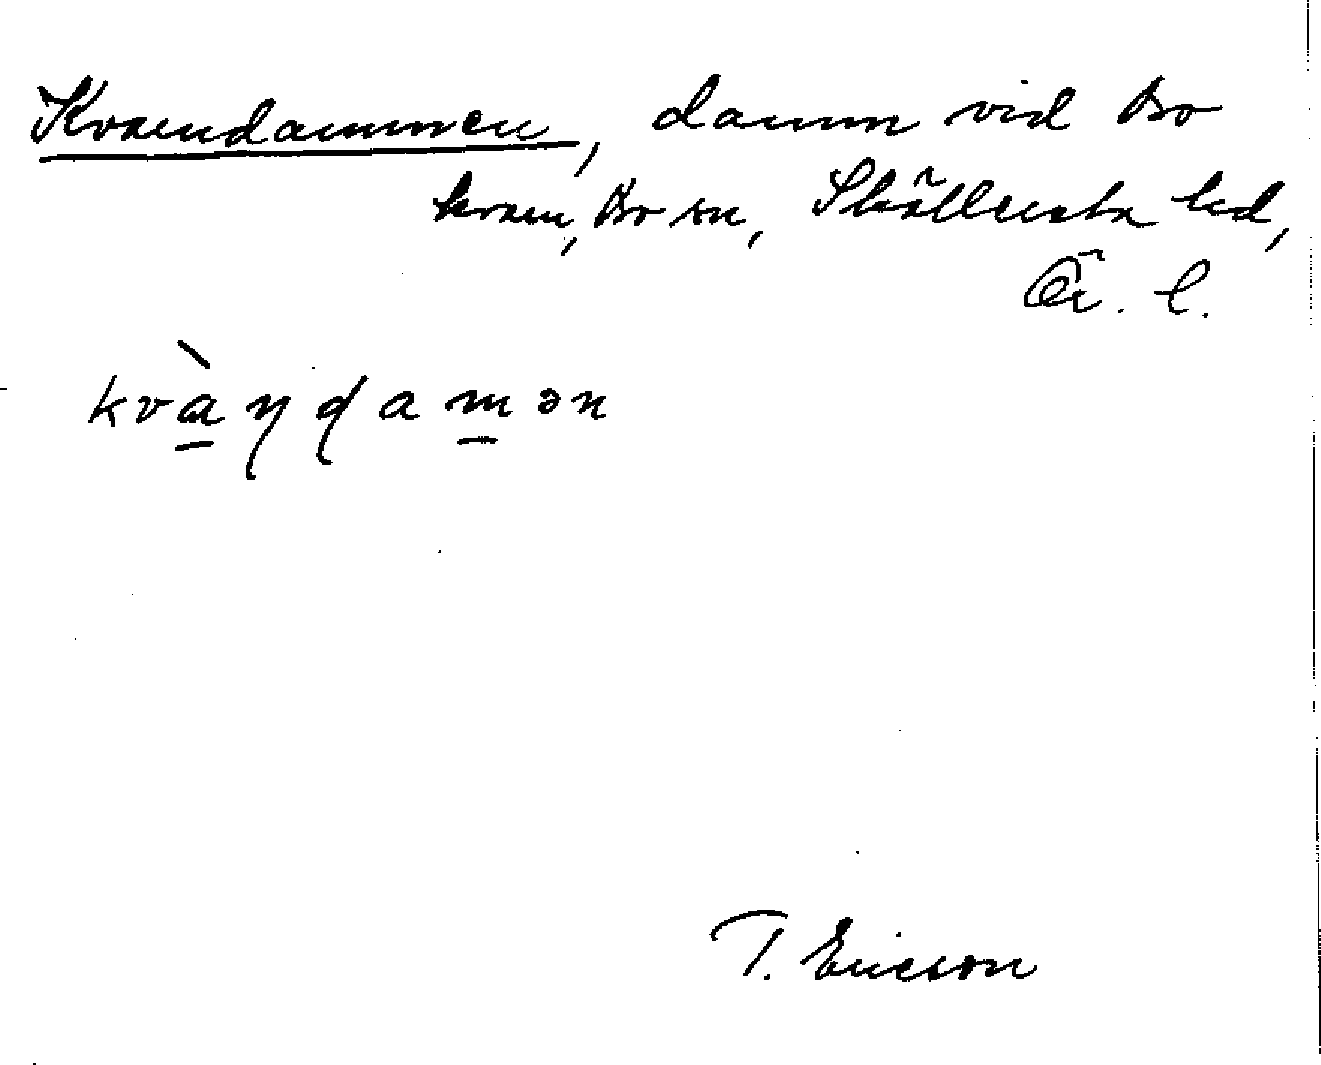 Kvarndammen, damm vid Bo
kvarn, Bo sn, Sköllersta hd,
Ör. l.
kvàṇḍamən
T. Ericson